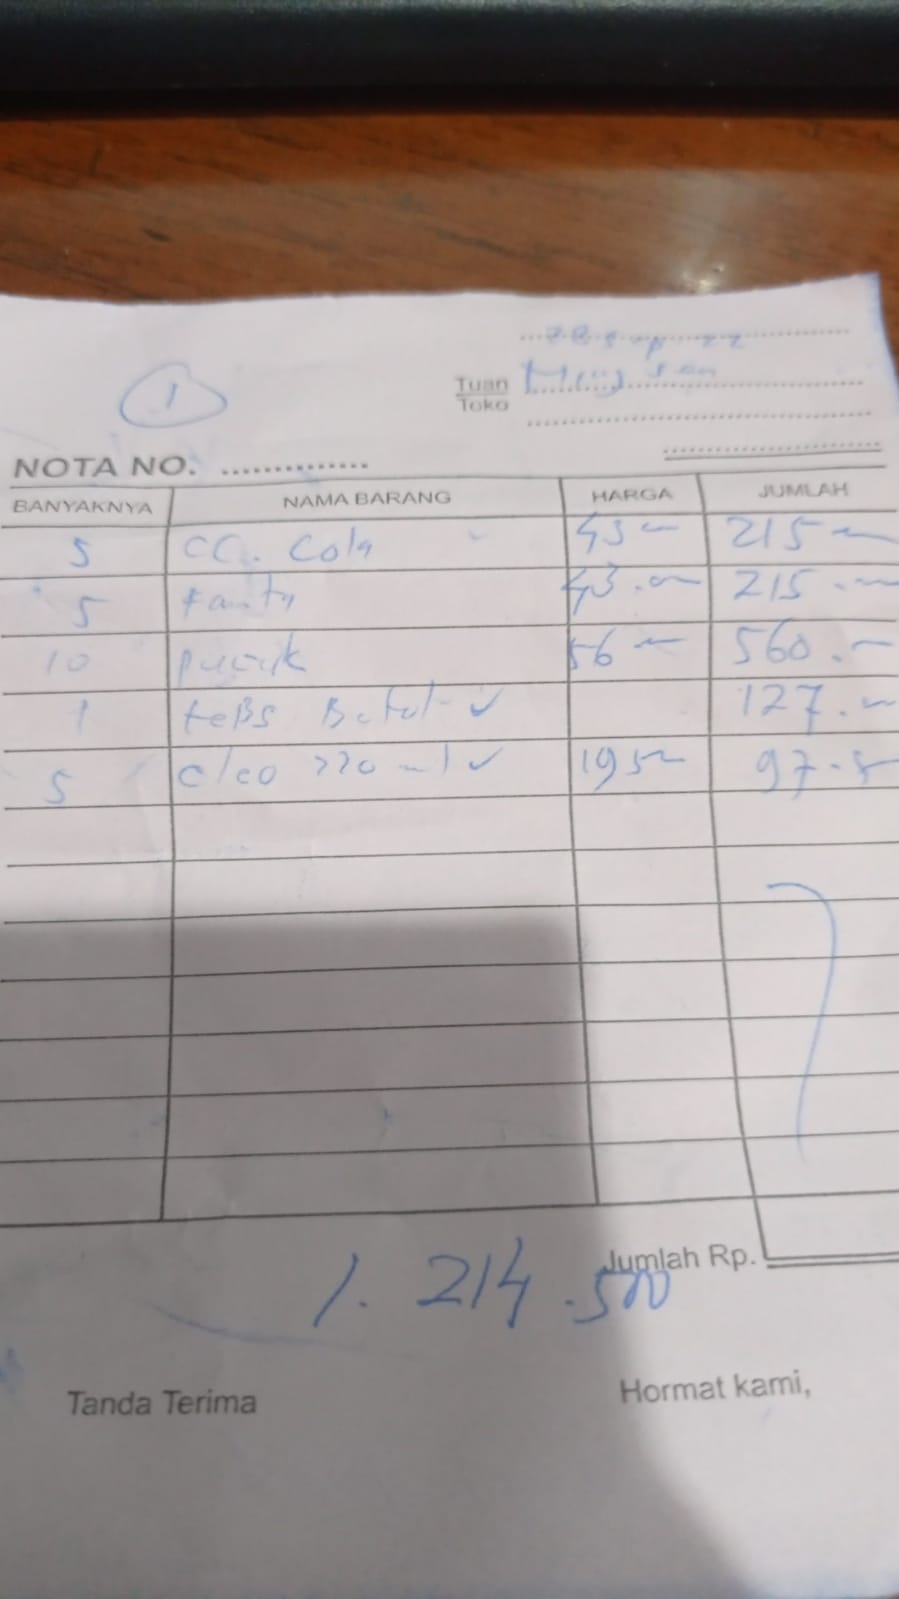 1
Tuan
Toko
NOTA NO. ..............
BANYAKNYA NAMA BARANG HARGA JUMLAH
5 CC. Cola 43 215
5 Fanta 43. 215.
10 pucuk 56 560.
1 tebs Botol 127.
5 cleo 220 ml 195 97.5
Jumlah Rp.
1. 214.500
Tanda Terima Hormat kami,